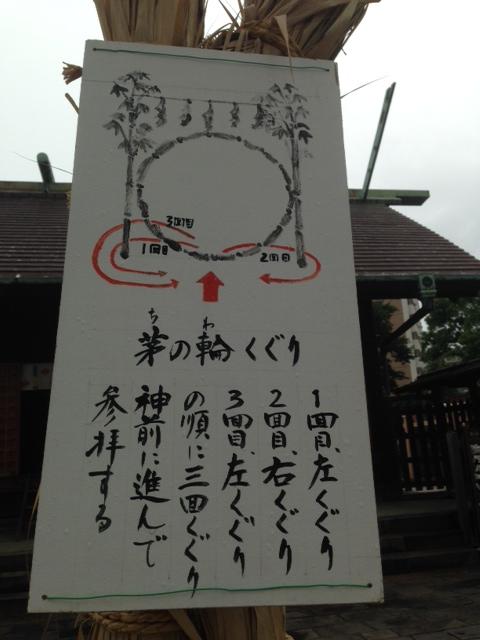 3回目
1回目
2回目
ち わ
茅の輪くぐり
1回目、左くぐり
2回目、右くぐり
3回目、左くぐり
の順に三回くぐり
神前に進んで
参拝する